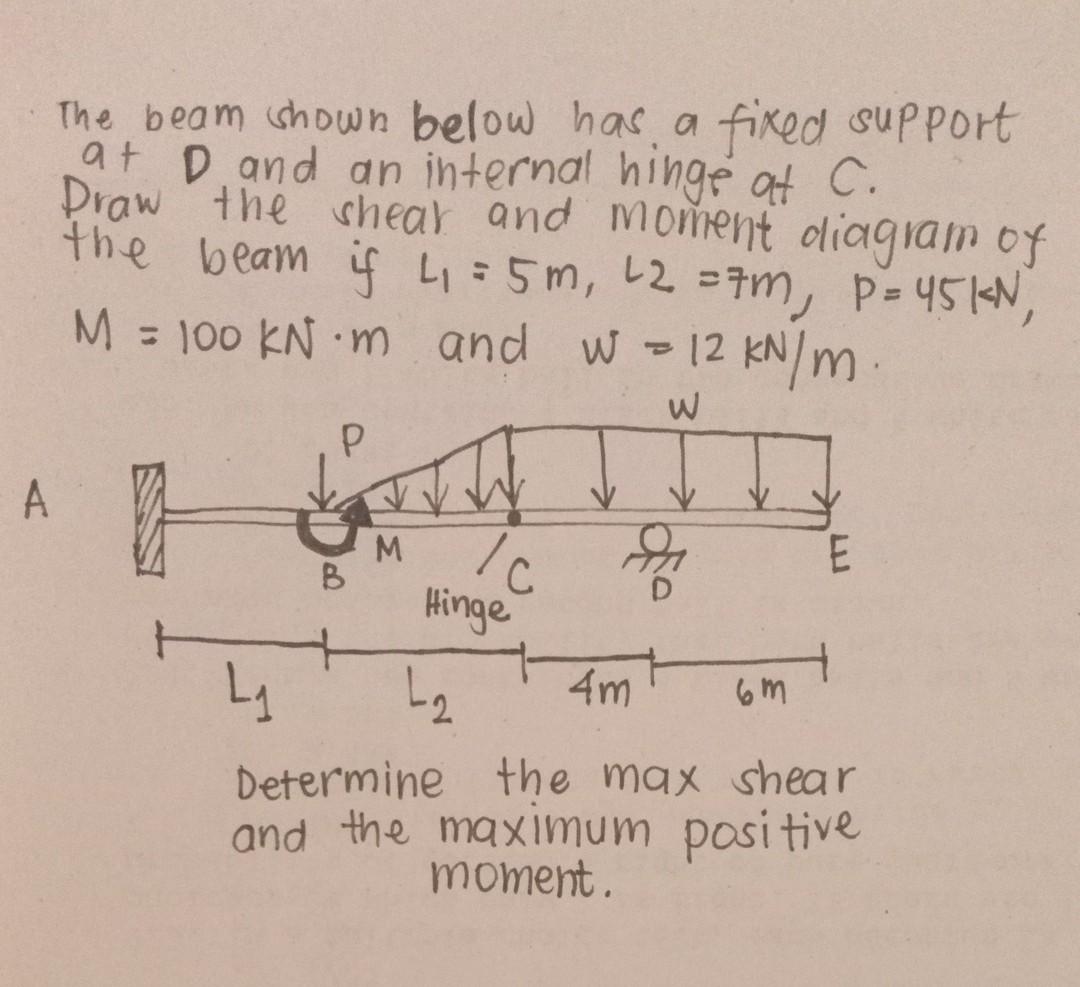 The beam shown below has a fixed support
at D and an internal hinge at C.
Draw the shear and moment diagram of
the beam if L1 = 5m, L2 = 7m, P = 45 kN,
M = 100 KN·m and W = 12 kN/m.
W
P
A
M
B
C
Hinge
D
E
L1
L2
4m
6m
Determine the max shear
and the maximum positive
moment.